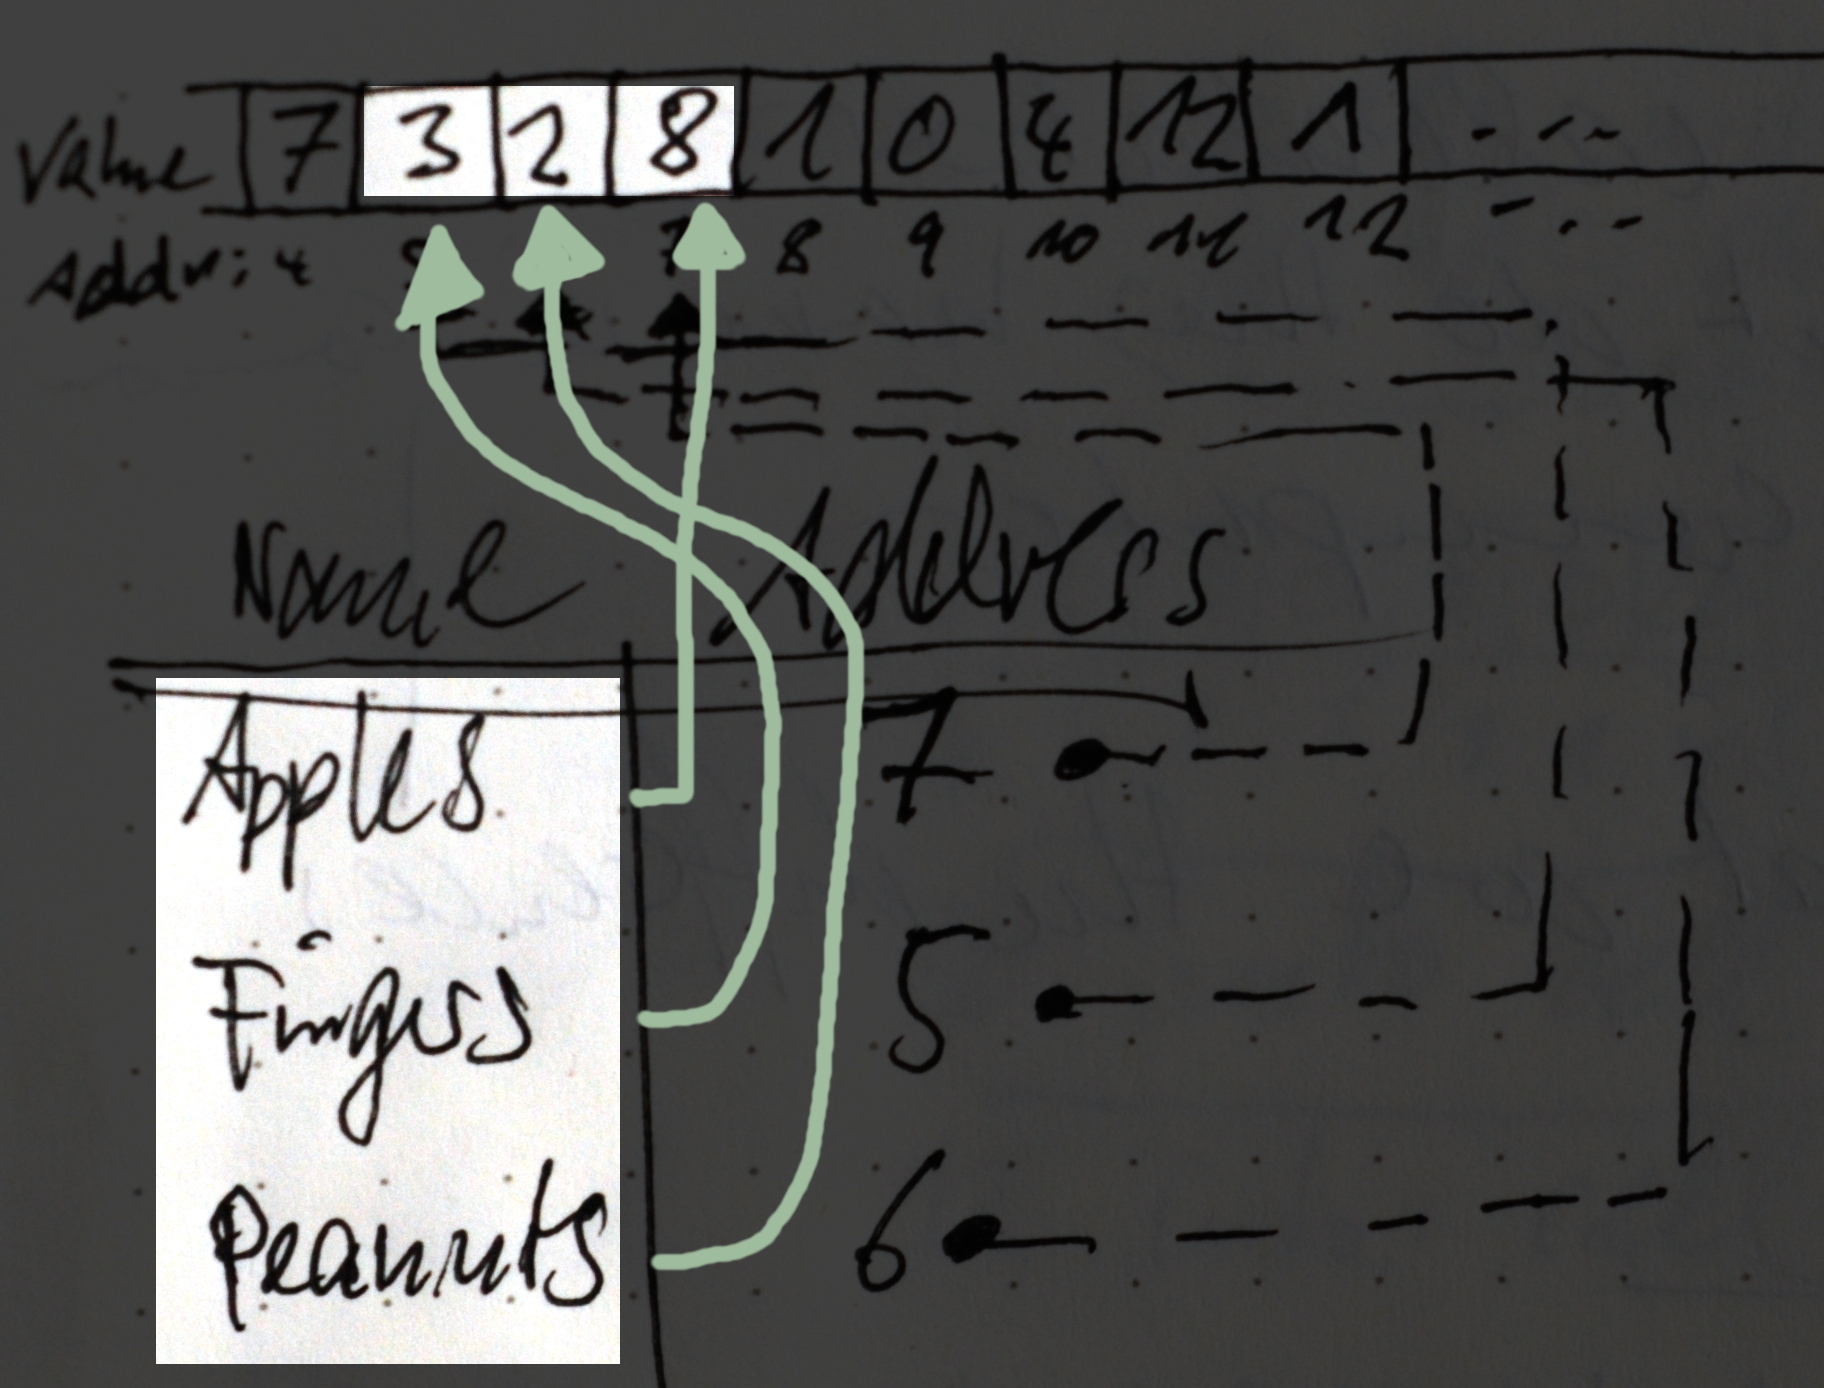 Value 7 3 2 8 1 0 4 12 1 ...
Addr: 4 7 8 9 10 11 12 ...
Name Address
Apples 7
Fingers 5
Peanuts 6